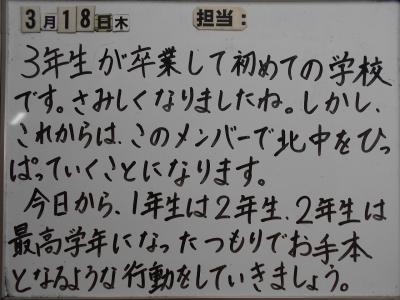 3月18日木 担当：
3年生が卒業して初めての学校
です。さみしくなりましたね。しかし、
これからは、このメンバーで北中をひっ
ぱっていくことになります。
今日から、1年生は2年生、2年生は
最高学年になったつもりでお手本
となるような行動をしていきましょう。